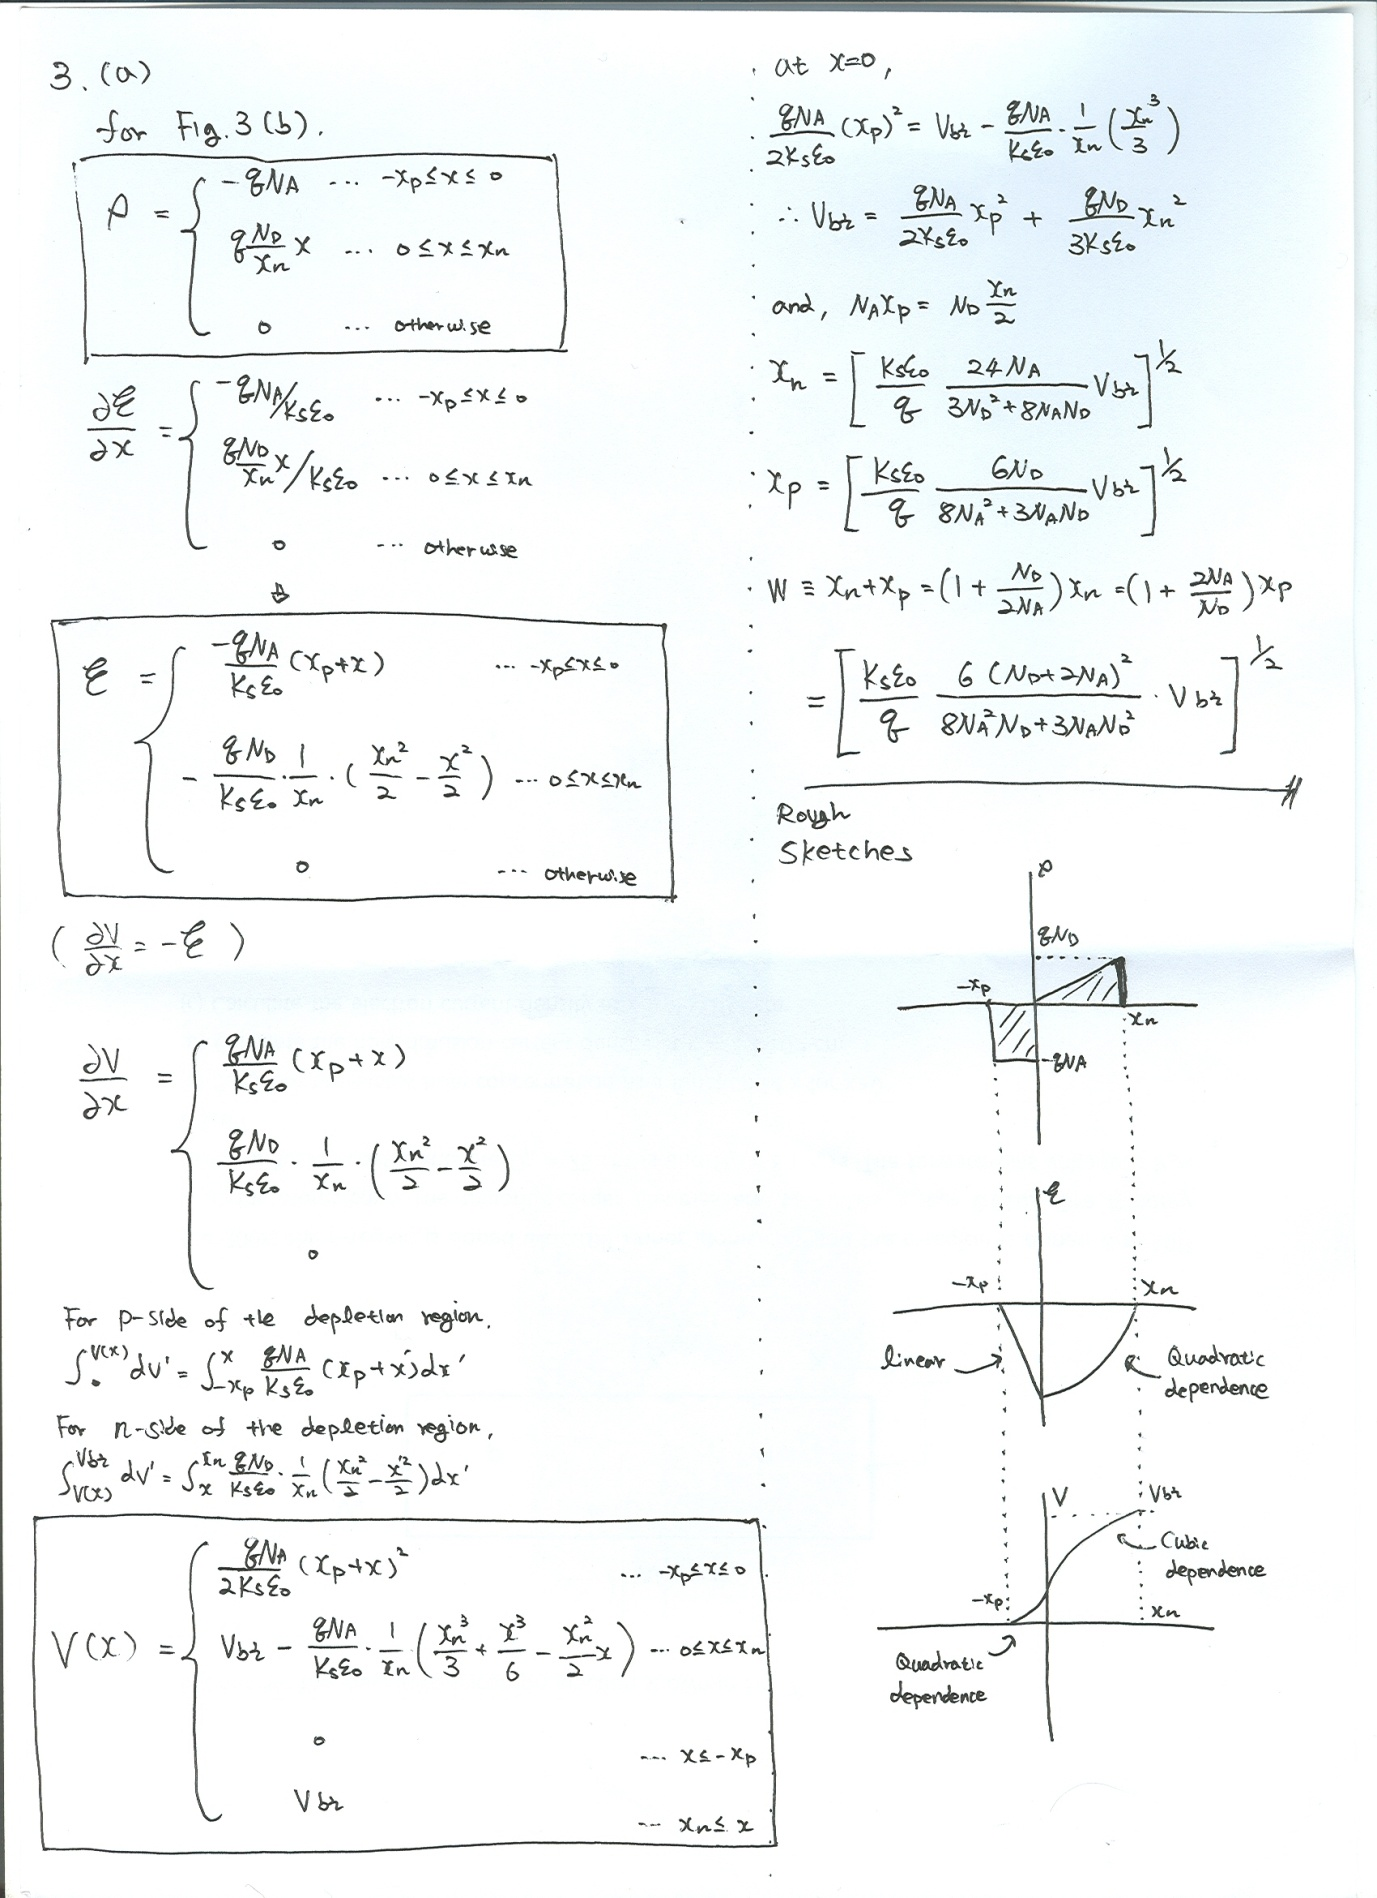 3. (a)
for Fig. 3 (b).
ρ = { -qNA ... -xp ≤ x ≤ 0
q ND/xn x ... 0 ≤ x ≤ xn
0 ... otherwise
∂ℰ/∂x = { -qNA/Ksε0 ... -xp ≤ x ≤ 0
qND/xn x/Ksε0 ... 0 ≤ x ≤ xn
0 ... otherwise
⇩
ℰ = { -qNA/Ksε0 (xp+x) ... -xp ≤ x ≤ 0
- qND/Ksε0 · 1/xn · (xn²/2 - x²/2) ... 0 ≤ x ≤ xn
0 ... otherwise
( ∂V/∂x = -ℰ )
∂V/∂x = { qNA/Ksε0 (xp+x)
qND/Ksε0 · 1/xn · (xn²/2 - x²/2)
0
For p-side of the depletion region,
∫₀^V(x) dV' = ∫_-xp^x qNA/Ksε0 (xp+x')dx'
For n-side of the depletion region,
∫_V(x)^Vbi dV' = ∫_x^xn qND/Ksε0 · 1/xn (xn²/2 - x'²/2)dx'
V(x) = { qNA/2Ksε0 (xp+x)² ... -xp ≤ x ≤ 0
Vbi - qNA/Ksε0 · 1/xn (xn³/3 + x³/6 - xn²/2 x) ... 0 ≤ x ≤ xn
0 ... x ≤ -xp
Vbi ... xn ≤ x
at x=0,
qNA/2Ksε0 (xp)² = Vbi - qNA/Ksε0 · 1/xn (xn³/3)
∴ Vbi = qNA/2Ksε0 xp² + qND/3Ksε0 xn²
and, NAxp = ND xn/2
xn = [ Ksε0/q 24NA/3ND²+8NAND Vbi ]^1/2
xp = [ Ksε0/q 6ND/8NA²+3NAND Vbi ]^1/2
W ≡ xn+xp = (1 + ND/2NA) xn = (1 + 2NA/ND) xp
= [ Ksε0/q 6(ND+2NA)²/8NA²ND+3NAND² · Vbi ]^1/2
Rough
Sketches
ρ
qND
-xp
xn
-qNA
ℰ
-xp
xn
linear
Quadratic
dependence
V
Vbi
Cubic
dependence
-xp
xn
Quadratic
dependence